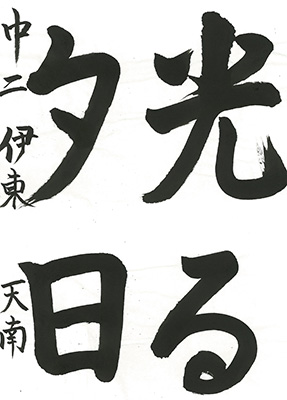 光る
夕日
中二 伊東 天南